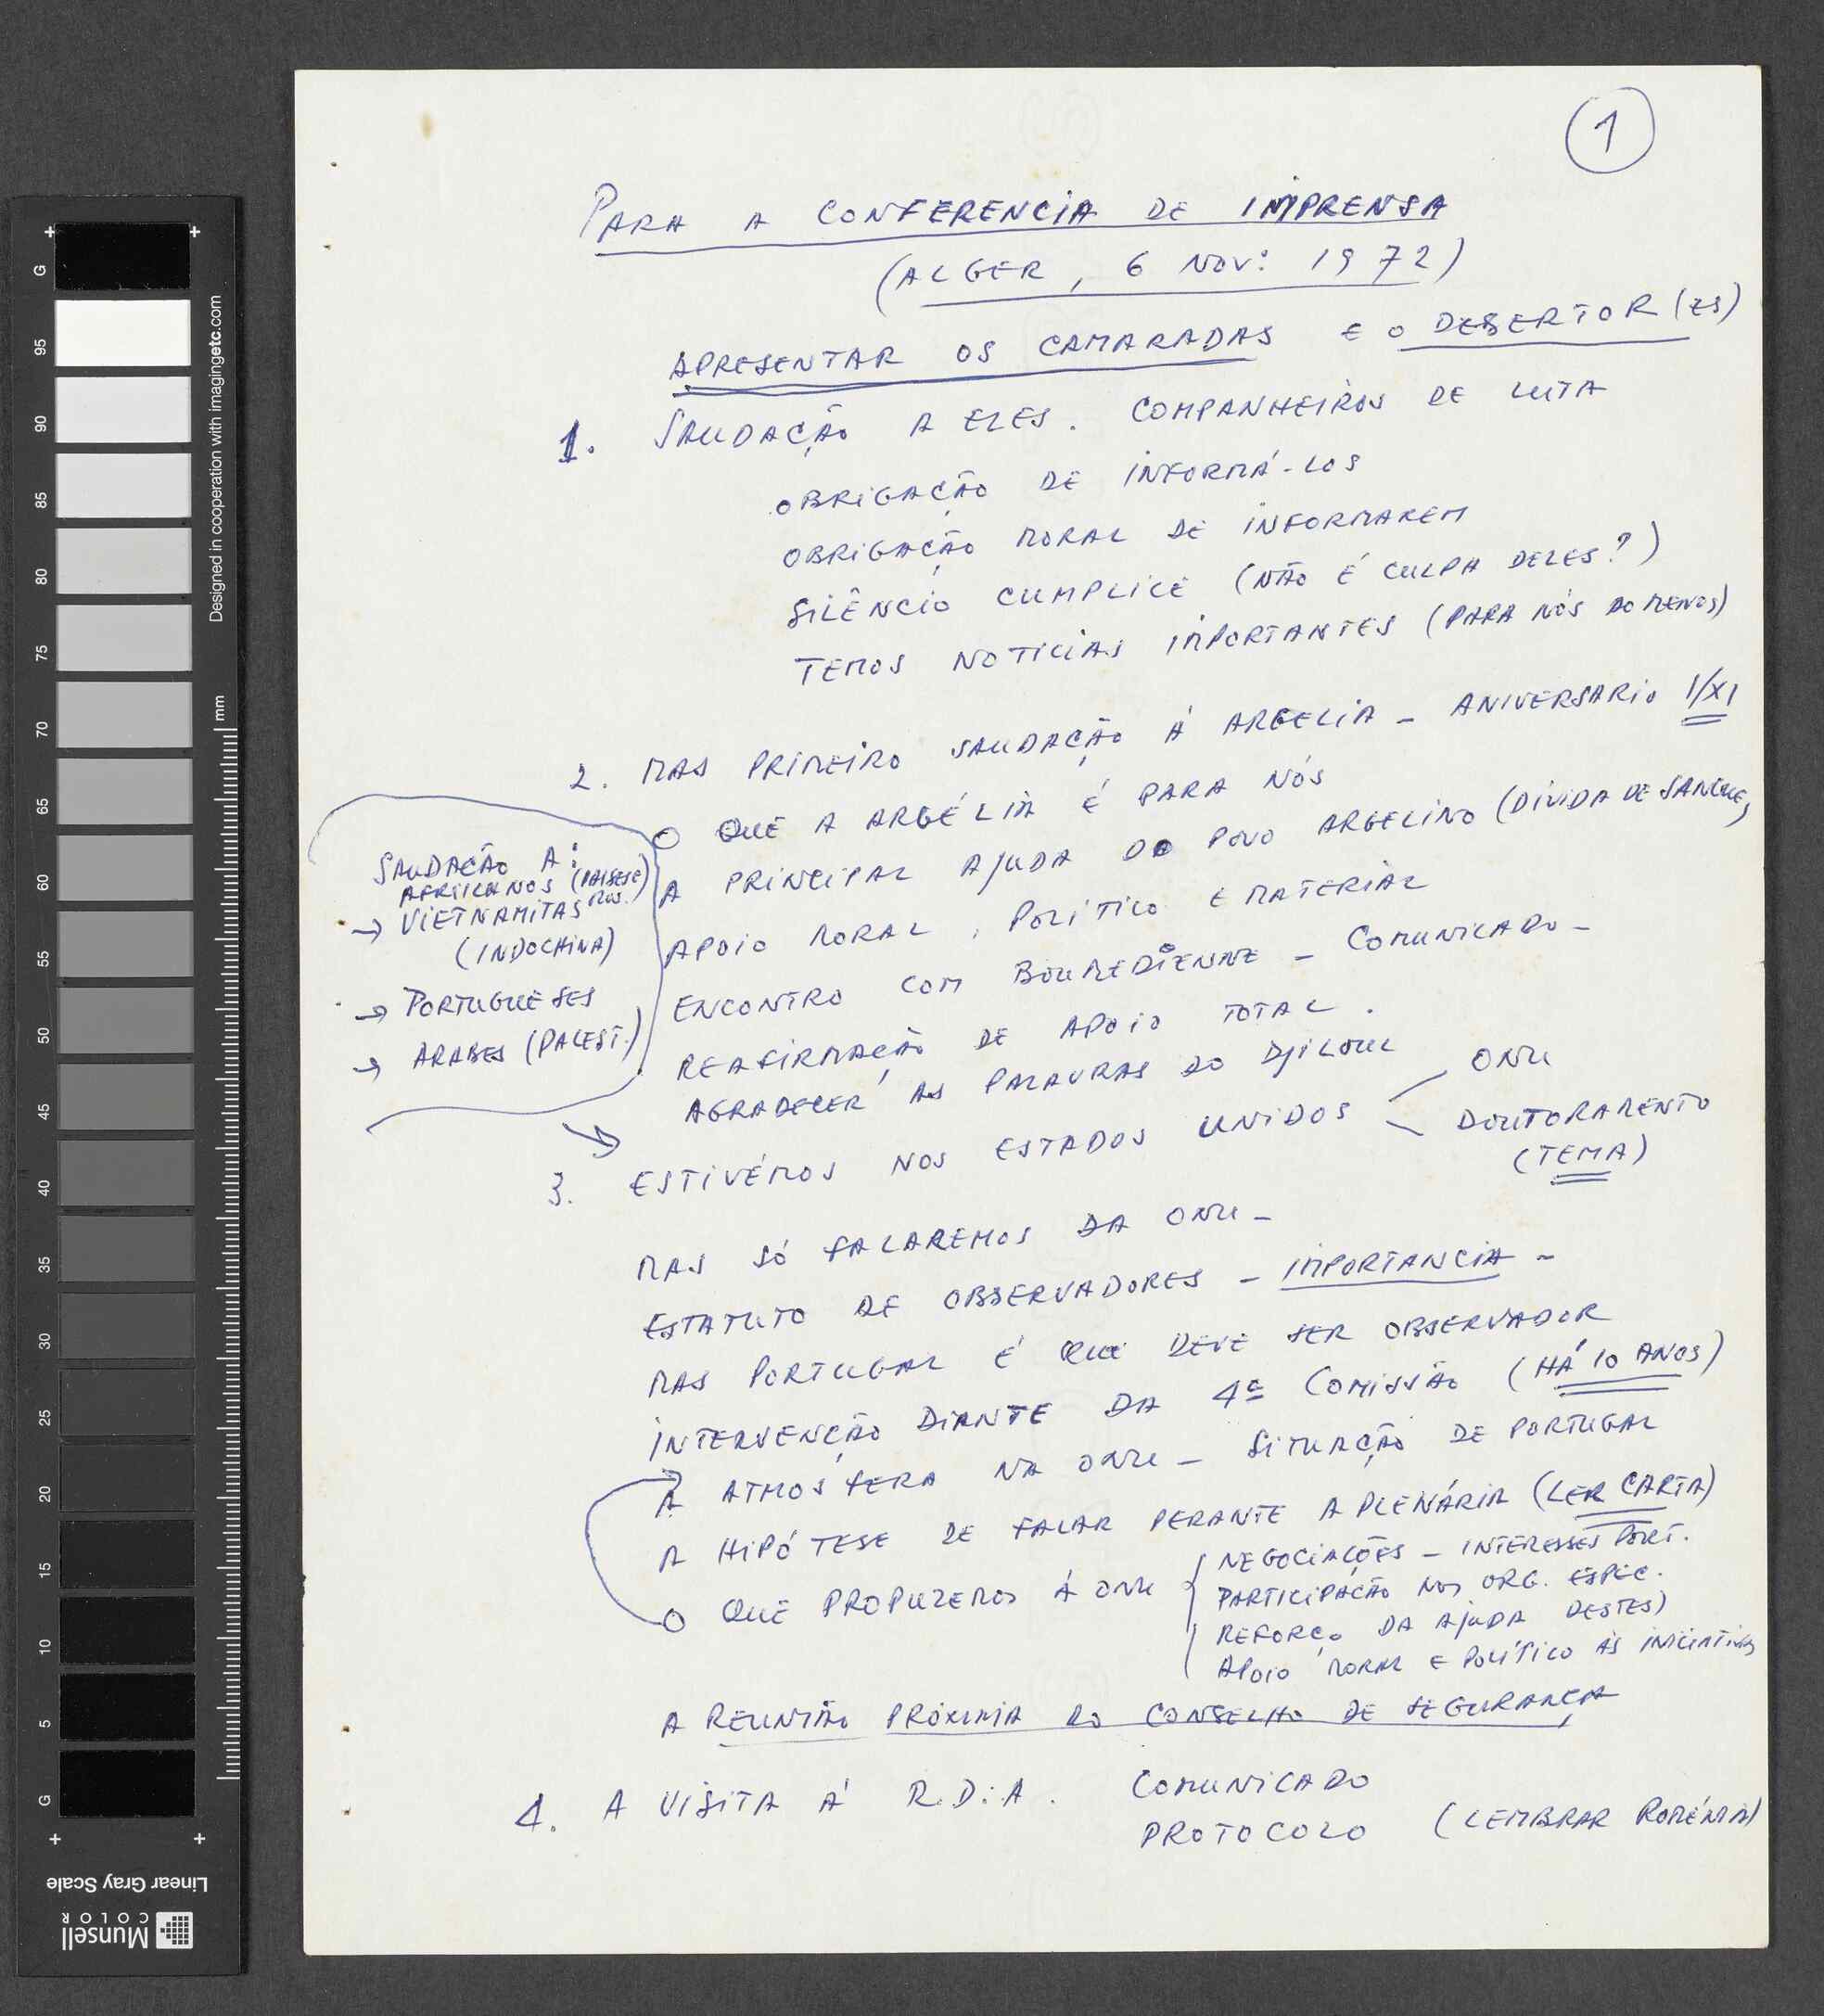 1
PARA A CONFERENCIA DE IMPRENSA
(ALGER, 6 NOV: 1972)
APRESENTAR OS CAMARADAS E O DESERTOR(ES)
1. SAUDAÇÃO A ELES. COMPANHEIROS DE LUTA
OBRIGAÇÃO DE INFORMÁ-LOS
OBRIGAÇÃO MORAL DE INFORMAREM
SILÊNCIO CUMPLICE (NÃO É CULPA DELES?)
TEMOS NOTICIAS IMPORTANTES (PARA NÓS AO MENOS)
2. MAS PRIMEIRO SAUDAÇÃO Á ARGELIA - ANIVERSARIO 1/XI
O QUE A ARGÉLIA É PARA NÓS
A PRINCIPAL AJUDA DO POVO ARGELINO (DÍVIDA DE SANGUE)
APOIO MORAL, POLÍTICO E MATERIAL
ENCONTRO COM BOUMEDIENNE - COMUNICADO -
REAFIRMAÇÃO DE APOIO TOTAL.
AGRADECER AS PALAVRAS DO DJILOUL
SAUDAÇÃO A:
AFRICANOS (PAISES E
MOV.)
→ VIETNAMITAS
(INDOCHINA)
→ PORTUGUESES
→ ARABES (PALEST.)
3. ESTIVÉMOS NOS ESTADOS UNIDOS
ONU
DOUTORAMENTO
(TEMA)
MAS SÓ FALAREMOS DA ONU -
ESTATUTO DE OBSERVADORES - IMPORTANCIA -
MAS PORTUGAL É QUE DEVE SER OBSERVADOR
INTERVENÇÃO DIANTE DA 4ª COMISSÃO (HÁ 10 ANOS)
A ATMOSFERA NA ONU - SITUAÇÃO DE PORTUGAL
A HIPÓTESE DE FALAR PERANTE A PLENÁRIA (LER CARTA)
O QUE PROPUZEMOS Á ONU
NEGOCIAÇÕES - INTERESSES PORT.
PARTICIPAÇÃO NOS ORG. ESPEC.
REFORÇO DA AJUDA DESTES)
APOIO MORAL E POLÍTICO ÀS INICIATIVAS
A REUNIÃO PRÓXIMA DO CONSELHO DE SEGURANÇA
4. A VISITA Á R.D.A. COMUNICADO
PROTOCOLO (LEMBRAR ROMÉNIA)
Designed in cooperation with imagingetc.com
mm
G
95
90
85
80
75
70
65
60
55
50
45
40
35
30
25
20
15
10
5
G
Linear Gray Scale
Munsell
COLOR